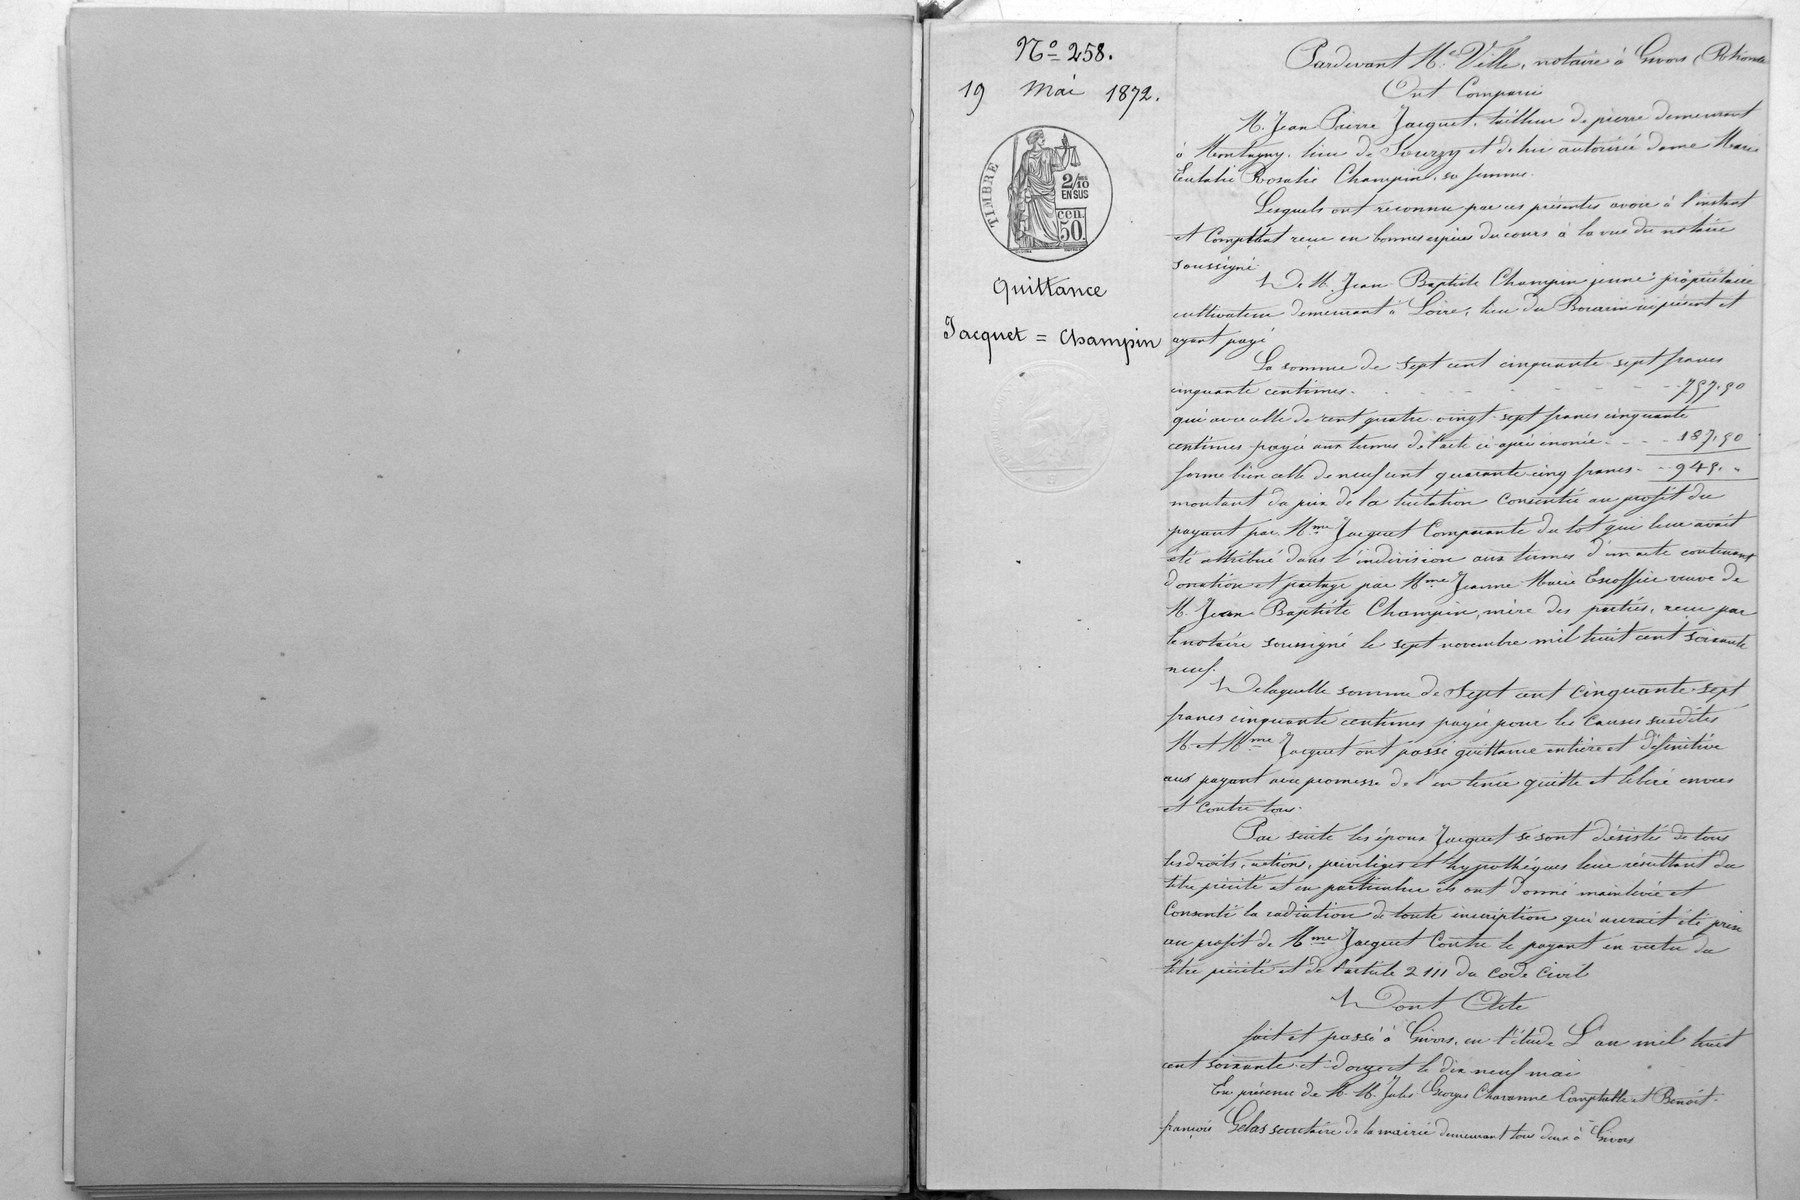 N° 258.
19 Mai 1872.
TIMBRE
2/10
EN SUS
cen.
50.
Quittance
Jacquet = Champin
Pardevant Me Ville, notaire à Givors (Rhône
Ont Comparu
M. Jean Pierre Jacquet, tailleur de pierre demeurant
à Montagny, lieu de Sourzy et de lui autorisée dame Marie
Eulalie Rosalie Champin, sa femme.
Lesquels ont reconnu par ces présentes avoir à l'instant
et Comptant reçu en bonnes espèces du cours à la vue du notaire
soussigné
De M. Jean Baptiste Champin jeune propriétaire
cultivateur demeurant à Loire, lieu du ici présent et
ayant payé
La somme de sept cent cinquante-sept francs
cinquante centimes. - - - - - - 757.50
qui avec celle de cent quatre-vingt-sept francs cinquante
centimes payée aux termes de l'acte ci-après énoncé - - - 187.50
forme bien celle de neuf cent quarante-cinq francs - - 945. "
montant du prix de la licitation Consentie au profit du
payant par Mme Jacquet Comparante du lot qui leur avait
été attribué dans l'indivision aux termes d'un acte contenant
donation et partage par Mme Jeanne Marie Escoffier veuve de
M. Jean Baptiste Champin, mère des parties, reçu par
le notaire soussigné le sept novembre mil huit cent soixante
neuf.
De laquelle somme de Sept cent Cinquante-sept
francs cinquante centimes payée pour les causes susdites
M. et Mme Jacquet ont passé quittance entière et définitive
au payant avec promesse de l'en tenir quitte et libéré envers
et contre tous.
Par suite les époux Jacquet se sont désistés de tous
les droits, actions, privilèges et hypothèques leur résultant du
titre précité et en particulier ils ont donné mainlevée et
Consenti la radiation de toute inscription qui aurait été prise
au profit de Mme Jacquet Contre le payant en vertu du
titre précité et de l'article 2111 du code Civil
Dont Acte
fait et passé à Givors, en l'étude L'an mil huit
cent soixante et douze et le dix neuf mai
En présence de M. M. Jules Georges Chavanne Comptable et Benoît-
françois Gelas secrétaire de la mairie demeurant tous deux à Givors